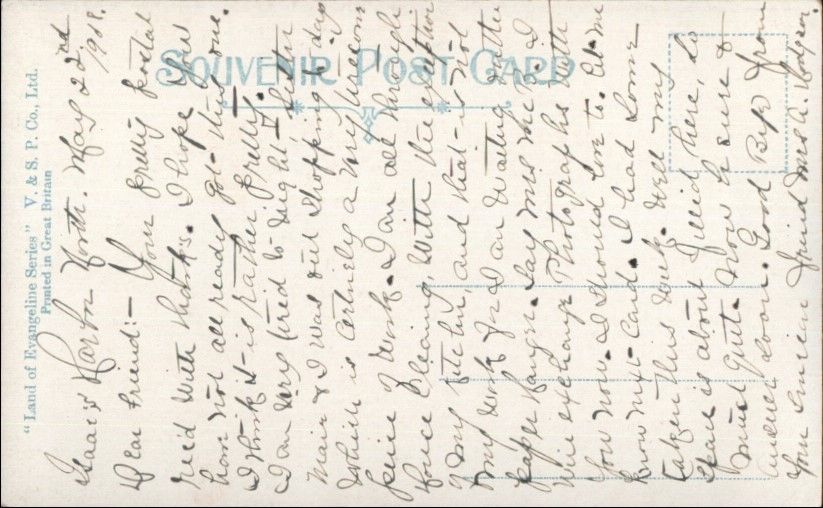 SOUVENIR POST CARD
"Land of Evangeline Series" V. & S. P. Co., Ltd.
Printed in Great Britain
Isaac's Harbor North. May 22nd
1908.
Dear Friend:— Your pretty postal
rec'd with thanks. I hope you
have not all ready got this one.
I think it is rather pretty.
I am very tired to night. Sister
Main & I was out shopping to day
which is certinely a very
peice of work. I am all through
house cleaning, with the exception
of my kitchen, and that is not
my work for I am waiting on the
paper hanger. Say Mrs Mc. D. I
will exchange Photographs with
you now. I should love to. Let me
know next card. I had some
taken this week. Well my
space is about filled here, so
must quit. Now be sure &
answer soon. Good Bye from
your sincere friend Mrs A. Hodgson.